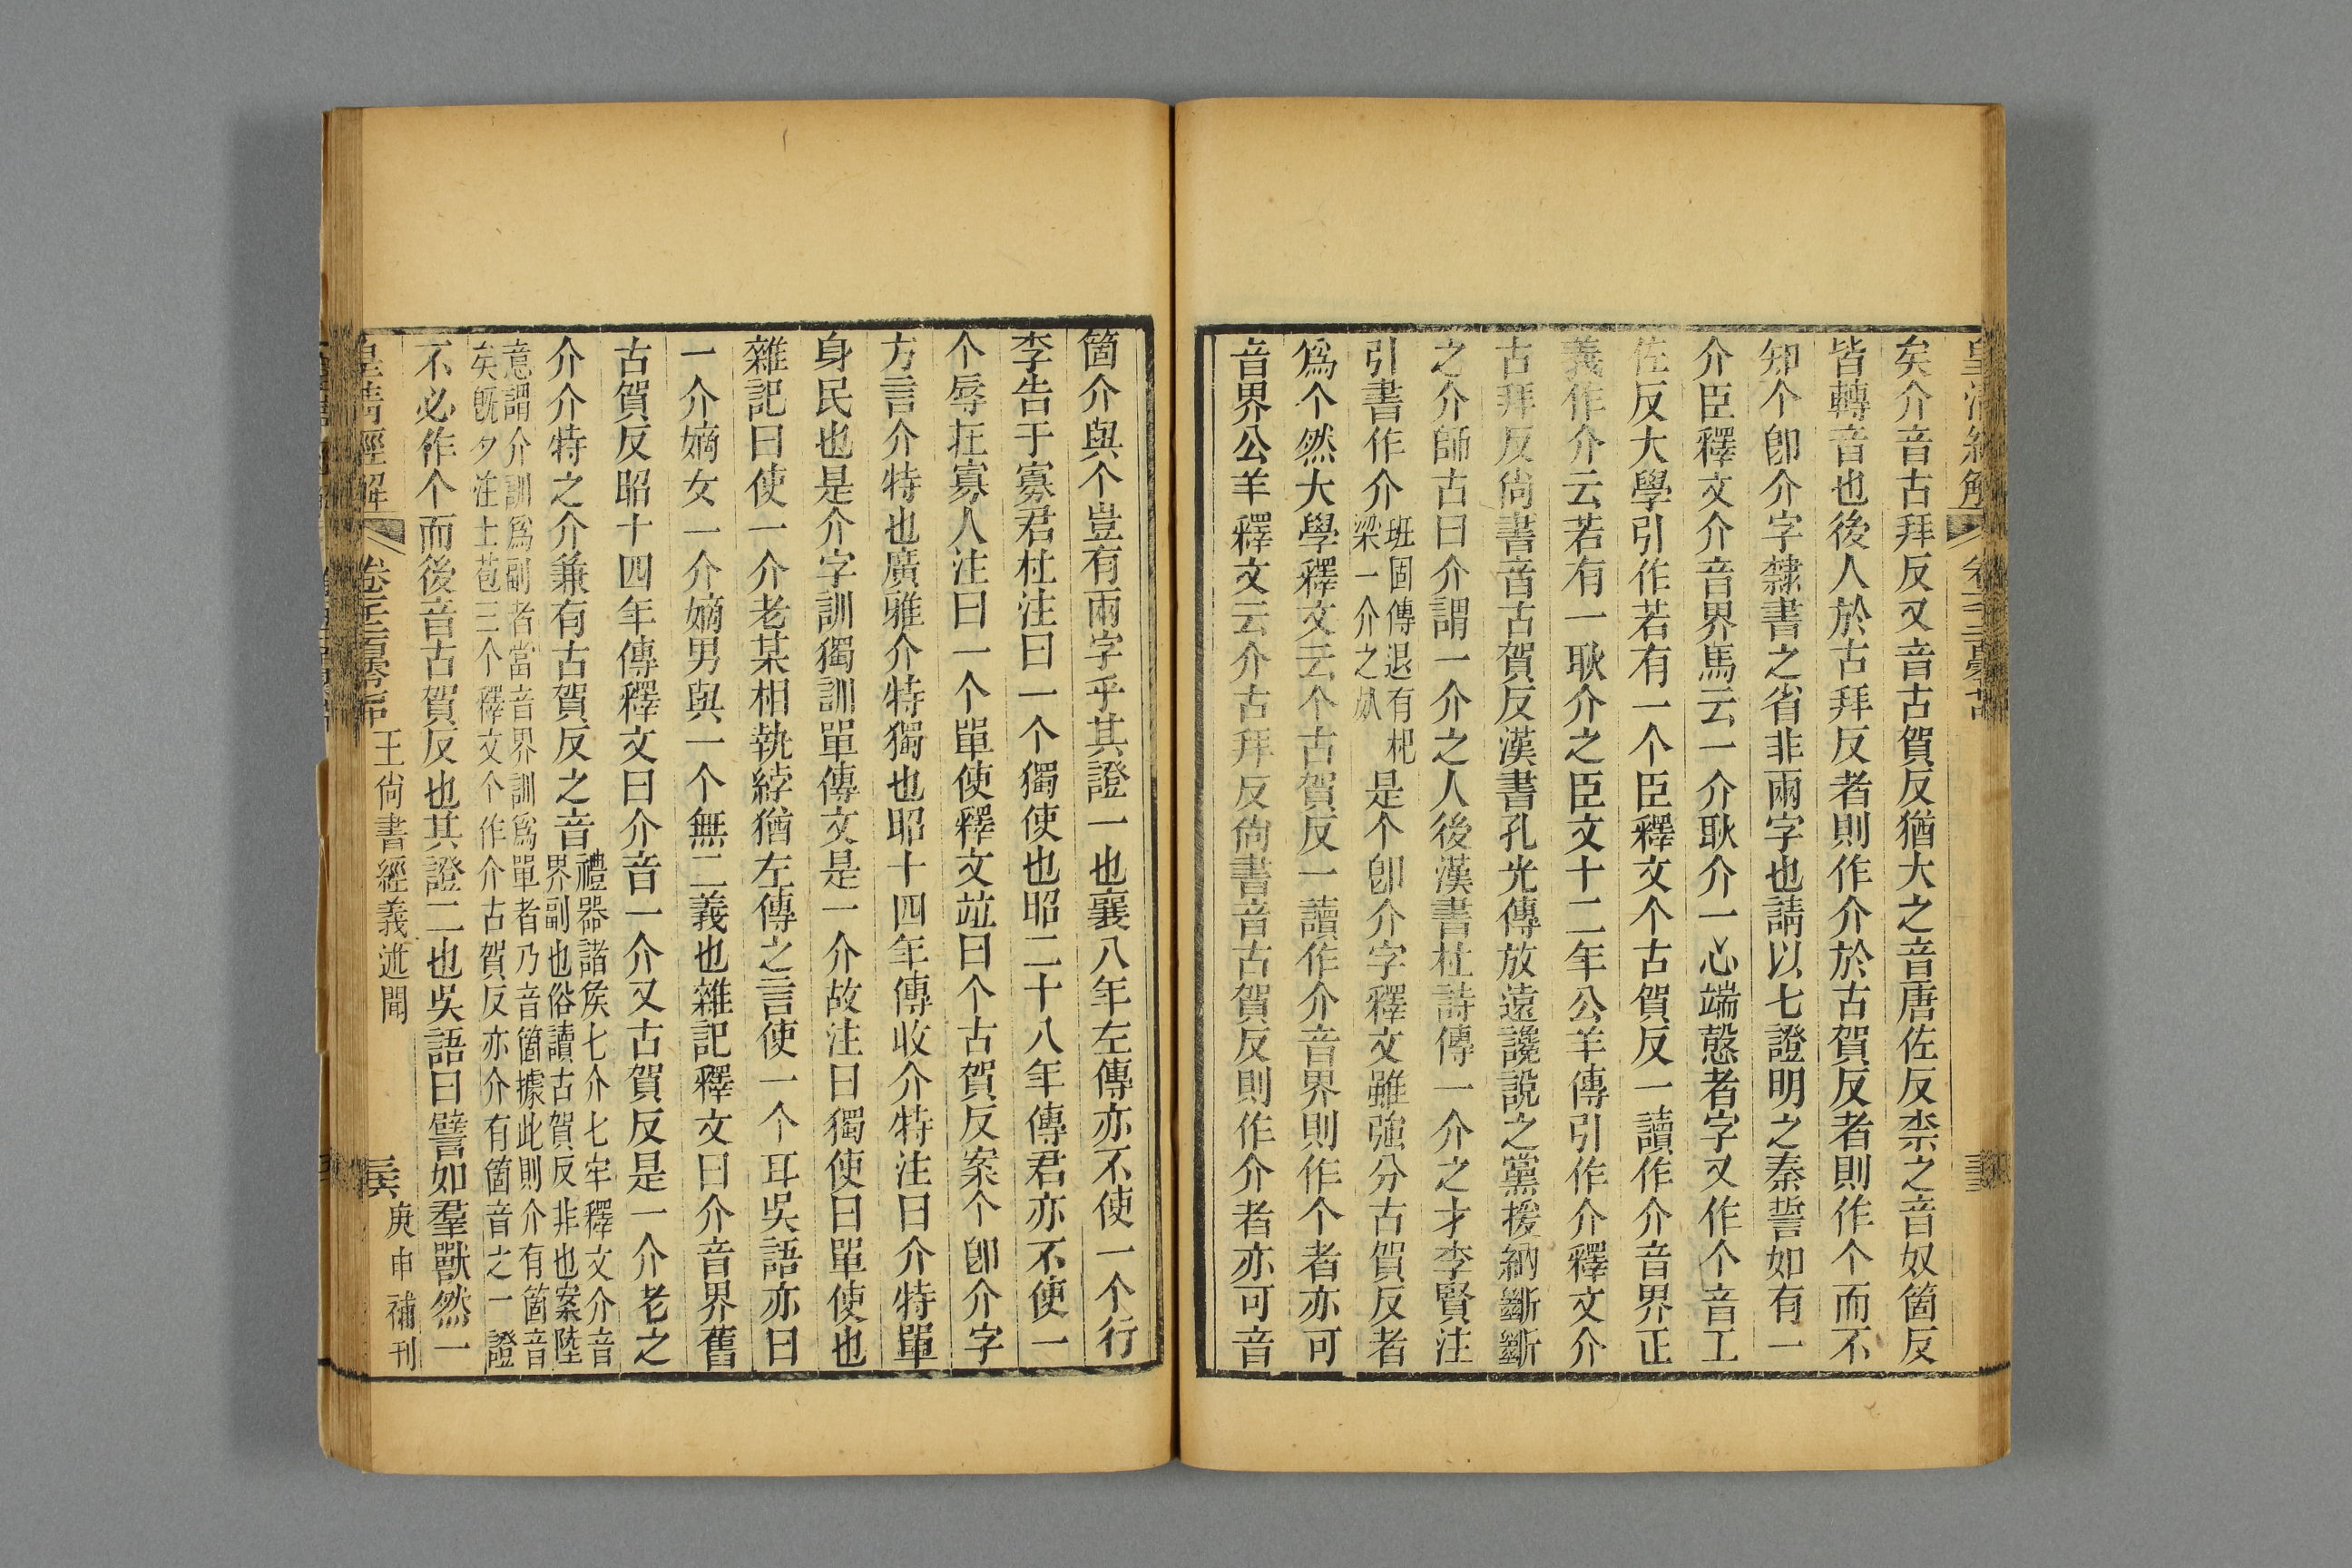 矣介音古拜反又音古賀反猶大之音唐佐反柰之音奴箇反
皆轉音也後人於古拜反者則作介於古賀反者則作个而不
知个卽介字隸書之省非兩字也請以七證明之秦誓如有一
介臣釋文介音界馬云一介耿介一心端慤者字又作个音工
佐反大學引作若有一个臣釋文个古賀反一讀作介音界正
義作介云若有一耿介之臣文十二年公羊傳引作介釋文介
古拜反尙書音古賀反漢書孔光傳放遠讒說之黨援納斷斷
之介師古曰介謂一介之人後漢書杜詩傳一介之才李賢注
引書作介班固傳退有杞梁一介之是个卽介字釋文雖強分古賀反者
爲个然大學釋文云个古賀反一讀作介音界則作个者亦可
音界公羊釋文云介古拜反尙書音古賀反則作介者亦可音
箇介與个豈有兩字乎其證一也襄八年左傳亦不使一个行
李告于寡君杜注曰一个獨使也昭二十八年傳君亦不使一
个辱在寡人注曰一个單使釋文竝曰个古賀反案个卽介字
方言介特也廣雅介特獨也昭十四年傳收介特注曰介特單
身民也是介字訓獨訓單傳文是一介故注曰獨使曰單使也
雜記曰使一介老某相執綍猶左傳之言使一个耳吳語亦曰
一介嫡女一介嫡男與一个無二義也雜記釋文曰介音界舊
古賀反昭十四年傳釋文曰介音一介又古賀反是一介老之
介介特之介兼有古賀反之音禮器諸矦七介七牢釋文介音
界副也俗讀古賀反非也案陸
意謂介訓爲副者當音界訓爲單者乃音箇據此則介有箇音
矣旣夕注士苞三个釋文个作介古賀反亦介有箇音之一證
不必作个而後音古賀反也其證二也吳語曰譬如羣獸然一
皇淸經解 王尙書經義述聞 庚申補刊